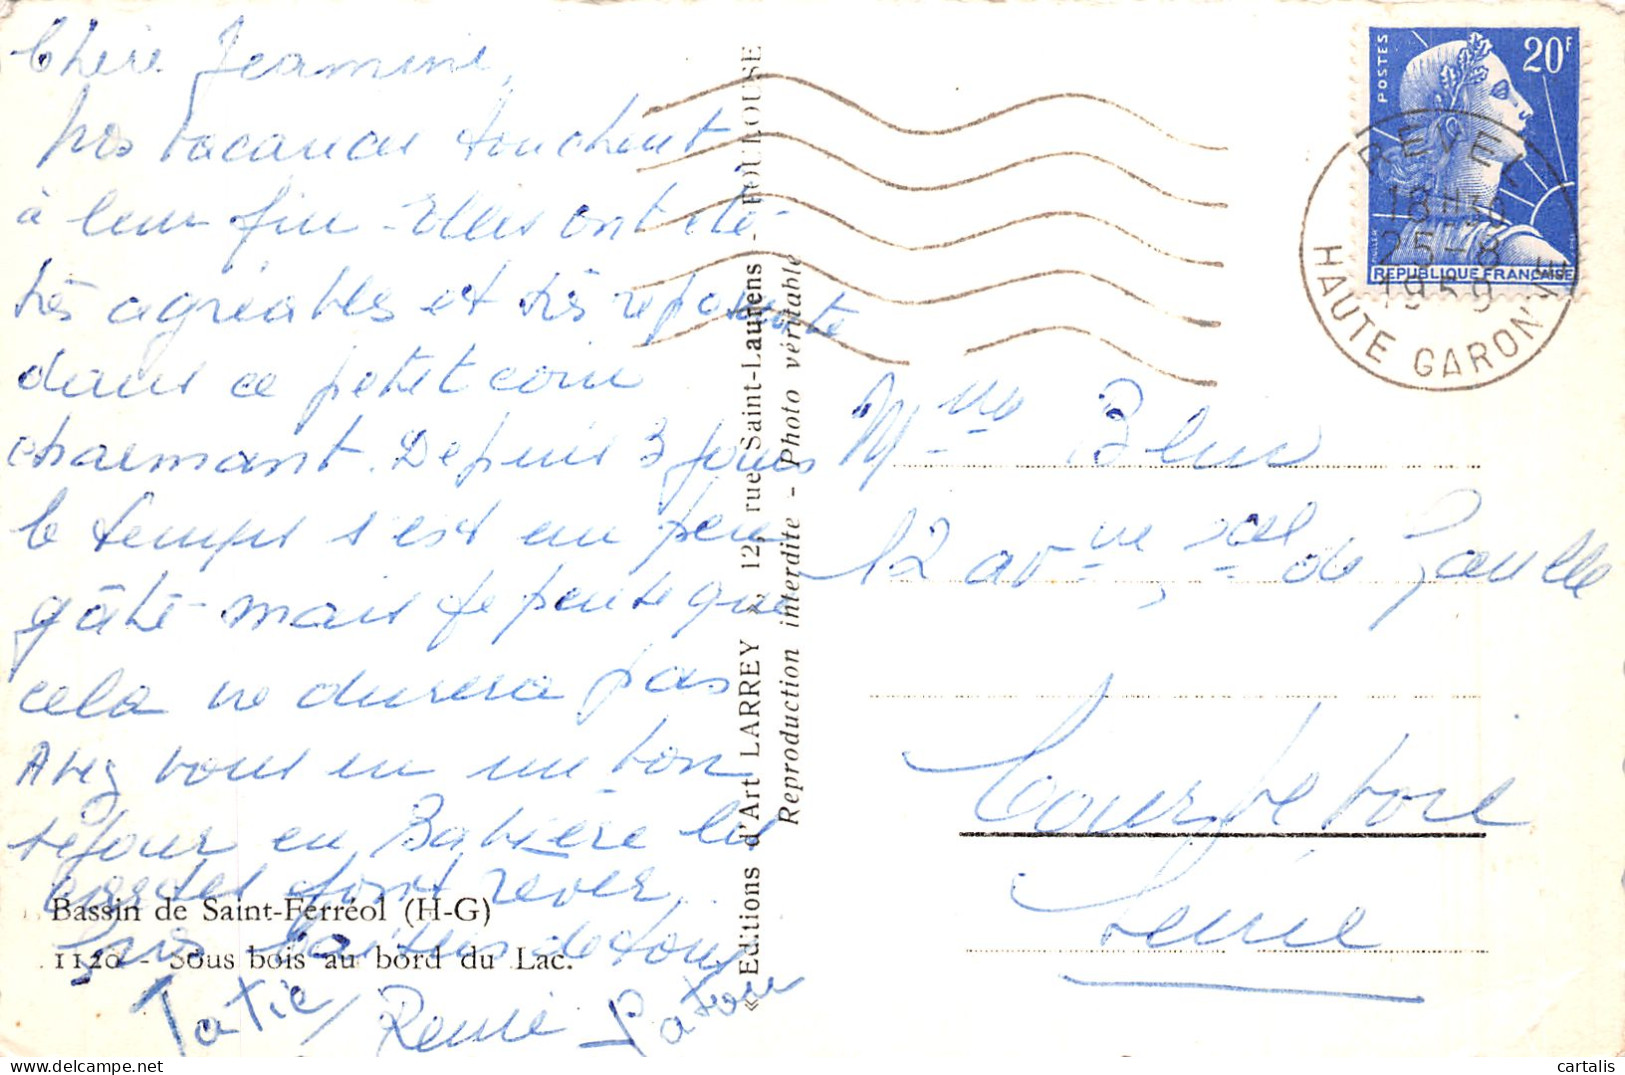 Chère Jeannine,
Nos vacances touchent
à leur fin - Elles ont été
très agréables et très reposante
dans ce petit coin
charmant. Depuis 3 jours
le temps s'est un peu
gâté - mais je pense que
cela ne durera pas
Avez vous eu un bon
séjour en Bavière les
cartes font rever.
Gros baisers de tous
Tatie Renée Gaton
Bassin de Saint-Ferréol (H-G)
1120 - Sous bois au bord du Lac.
« Editions d'Art LARREY » 12, rue Saint-Laurens - TOULOUSE
Reproduction interdite - Photo véritable
POSTES
20F
REPUBLIQUE FRANÇAISE
REVEL
18H30
25-8
1959
HAUTE GARONNE
Mme
12 avnue Gal de Gaulle
Courbevoie
Seine
cartalis
© cartalis | delcampe.net